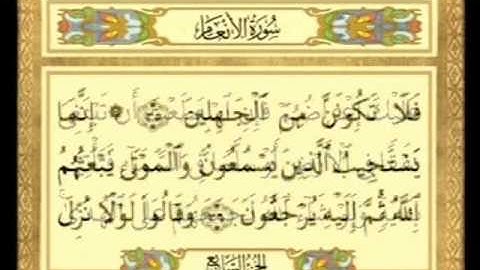 سُورَةُ الأَنْعَام
فَلَا تَكُونَنَّ مِنَ ٱلْجَٰهِلِينَ ۞ إِنَّمَا
يَسْتَجِيبُ ٱلَّذِينَ يَسْمَعُونَ وَٱلْمَوْتَىٰ يَبْعَثُهُمُ
ٱللَّهُ ثُمَّ إِلَيْهِ يُرْجَعُونَ وَقَالُوا۟ لَوْلَا نُزِّلَ
الجزء السابع